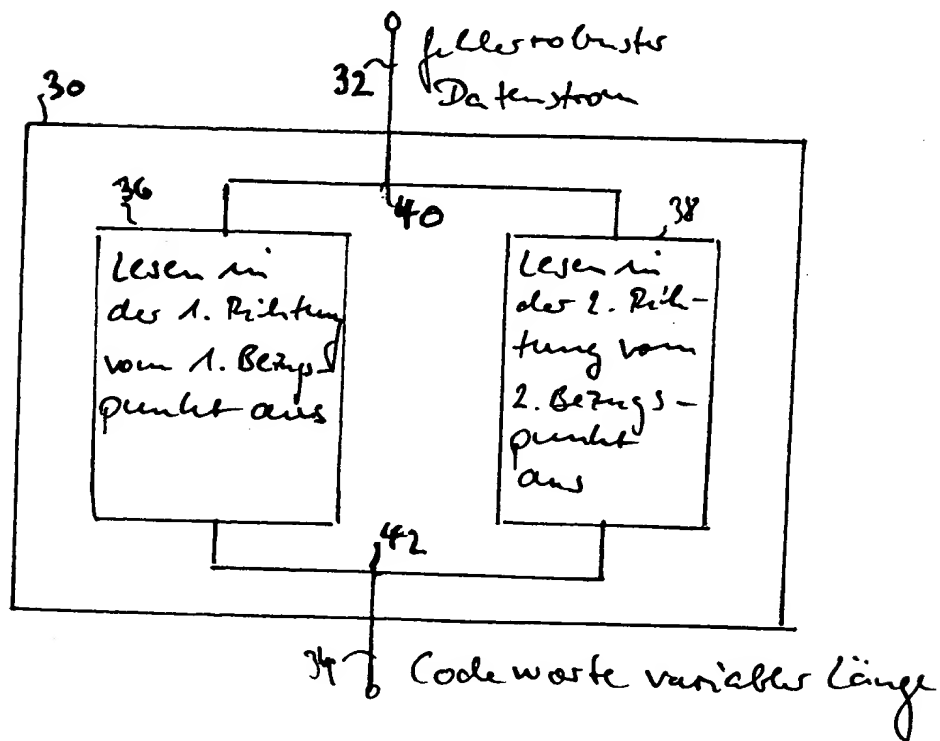 fehlerrobuster
32
Datenstrom
30
36
40
38
Lesen in
der 1. Richtung
vom 1. Bezugs
punkt aus
Lesen in
der 2. Rich-
tung vom
2. Bezugs-
punkt
aus
42
34
Codeworte variabler Länge